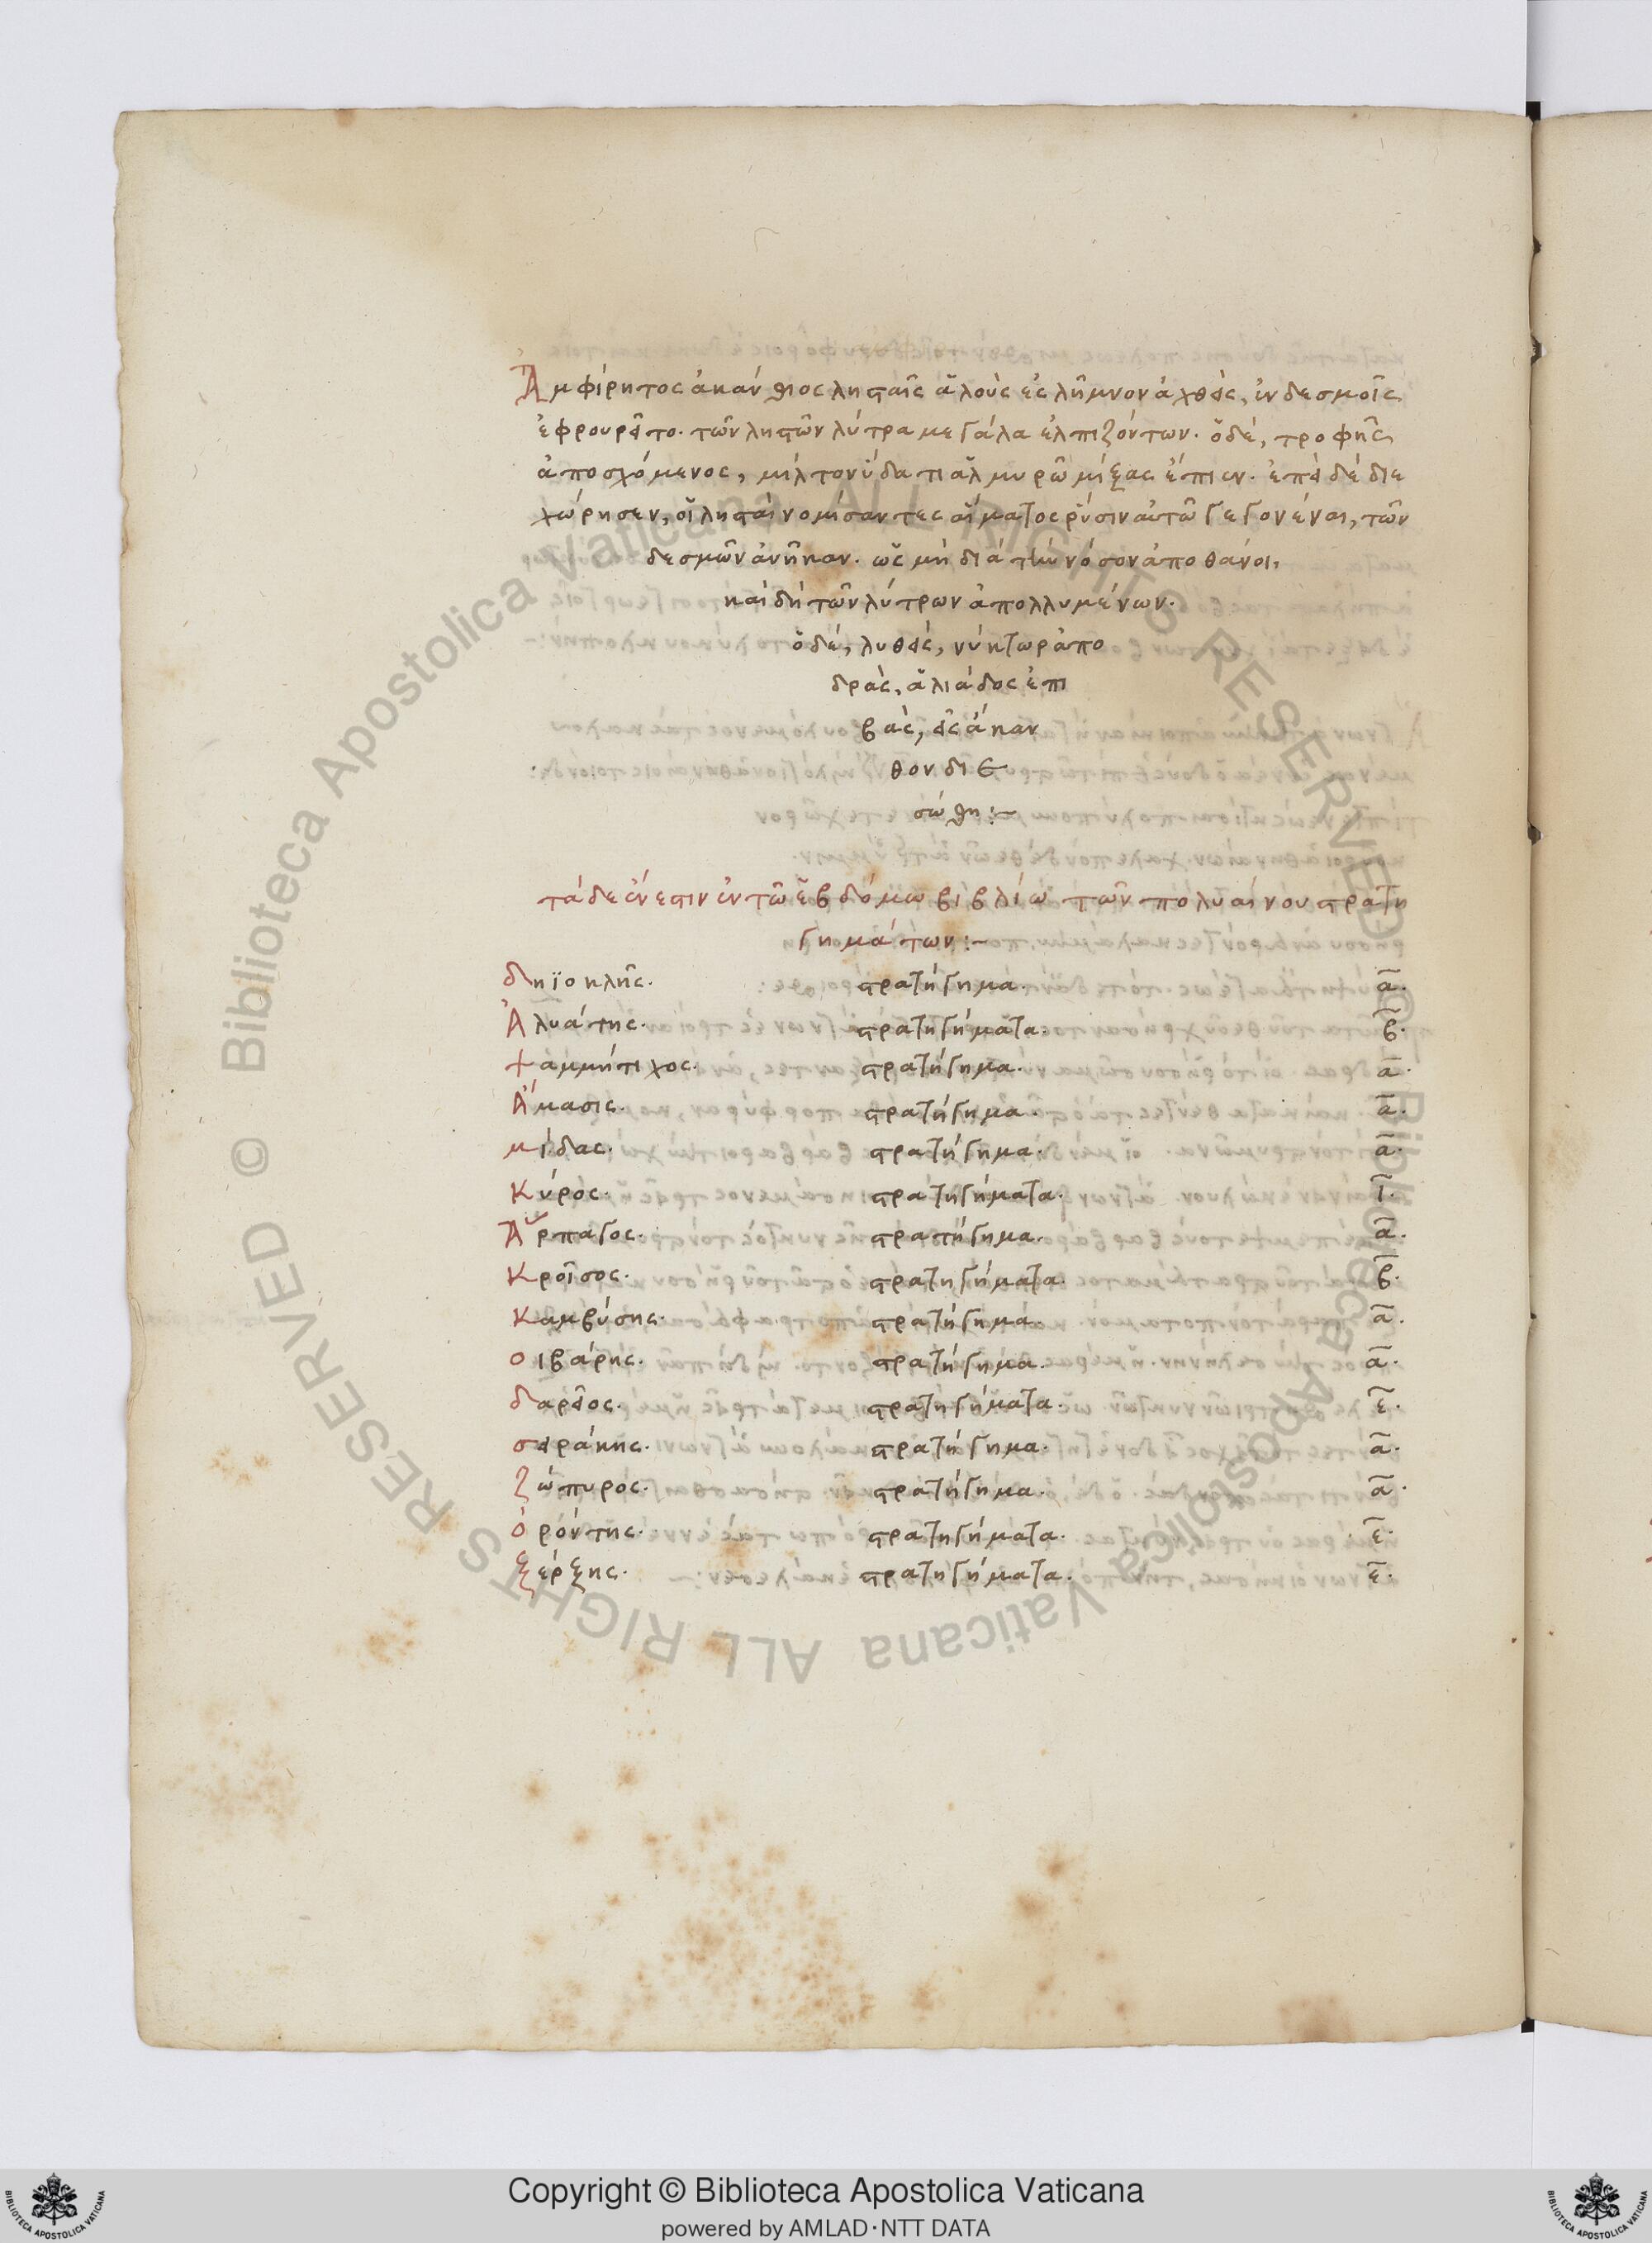 Ἀμφίρητος ἀκάνθιος λῃσταῖς ἁλοὺς ἐς λῆμνον ἀχθεὶς, ἐν δεσμοῖς
ἐφρουρεῖτο· τῶν λῃστῶν λύτρα μεγάλα ἐλπιζόντων. ὁ δὲ, τροφῆς
ἀποσχόμενος, μίλτον ὕδατι ἁλμυρῶ μίξας ἔπιεν. ἐπεὶ δὲ διε
χώρησεν, οἱ λῃσταὶ νομίσαντες αἵματος ρύσιν αὐτῶ γεγονέναι, τῶν
δεσμῶν ἀνῆκαν. ὡς μὴ διὰ τὴν νόσον ἀποθάνοι,
καὶ δὴ τῶν λύτρων ἀπολλυμένων.
ὁ δὲ, λυθεὶς, νύκτωρ ἀπο
δρὰς, ἁλιάδος ἐπι
βὰς, εἰς ἄκαν
θον διε
σώθη:~
τάδε ἔνεστιν ἐν τῶ ἑβδόμω βιβλίω τῶν πολυαίνου στρατη
γημάτων:~
δηϊοκλῆς. στρατήγημα. α̅.
Ἀλυάττης. στρατηγήματα. β̅.
ψαμμήτιχος. στρατήγημα. α̅.
Ἄμασις. στρατήγημα. α̅.
μίδας. στρατήγημα. α̅.
κύρος. στρατηγήματα. ι̅.
Ἅρπαγος. στρατήγημα. α̅.
κροῖσος. στρατηγήματα. β̅.
καμβύσης. στρατήγημα. α̅.
οιβάρης. στρατήγημα. α̅.
δαρεῖος. στρατηγήματα. ε̅.
σειράκης. στρατήγημα. α̅.
ζώπυρος. στρατήγημα. α̅.
ὀρόντης. στρατηγήματα. ε̅.
ξέρξης. στρατηγήματα. ε̅.
© Biblioteca Apostolica Vaticana ALL RIGHTS RESERVED
© Biblioteca Apostolica Vaticana ALL RIGHTS RESERVED
Copyright © Biblioteca Apostolica Vaticana
powered by AMLAD·NTT DATA
BIBLIOTECA APOSTOLICA VATICANA
BIBLIOTECA APOSTOLICA VATICANA